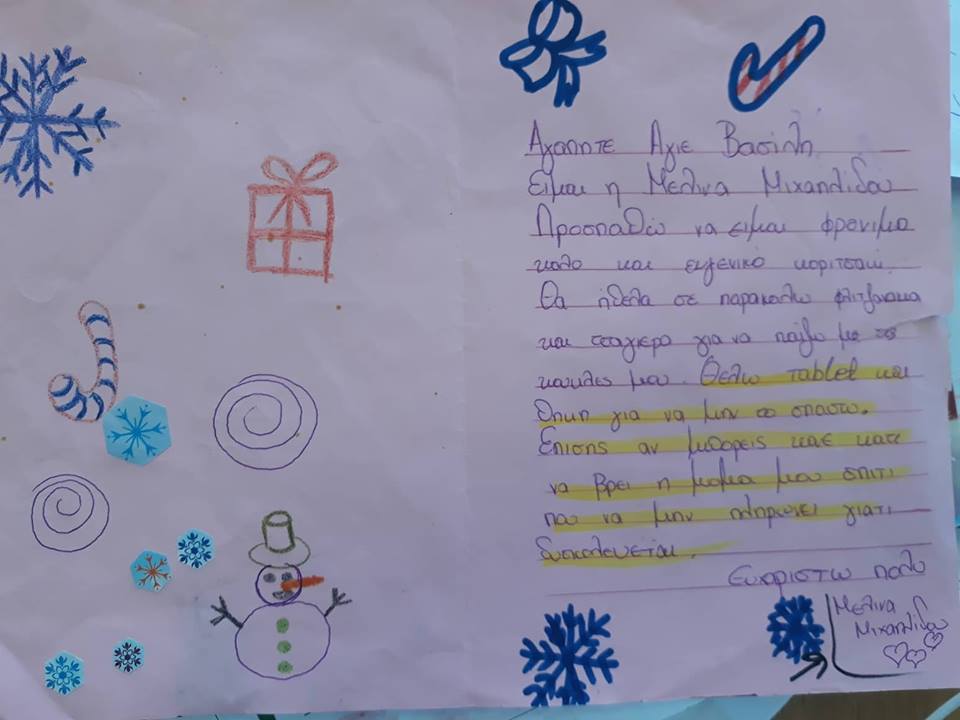 Αγαπητε Αγιε Βασιλη
Ειμαι η Μελινα Μιχαηλιδου
Προσπαθω να ειμαι φρονιμο
καλο και ευγενικο κοριτσακι.
Θα ήθελα σε παρακαλω φλιτζανακια
και τσαγιερα για να παιξω με τις
κουκλες μου. Θελω tablet και
Θηκη για να μην το σπασω.
Επισης αν μπορεις κανε κατι
να βρει η μαμα μου σπιτι
που να μην πληρωνει γιατι
δυσκολευεται.
Ευχαριστω πολυ
Μελινα
Μιχαηλιδου